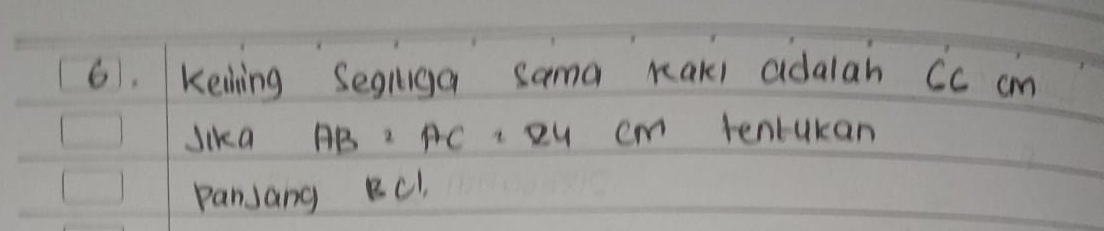 (6). Keliling Segitiga sama kaki adalah 66 cm
Jika AB = AC = 24 cm tentukan
panjang BC!